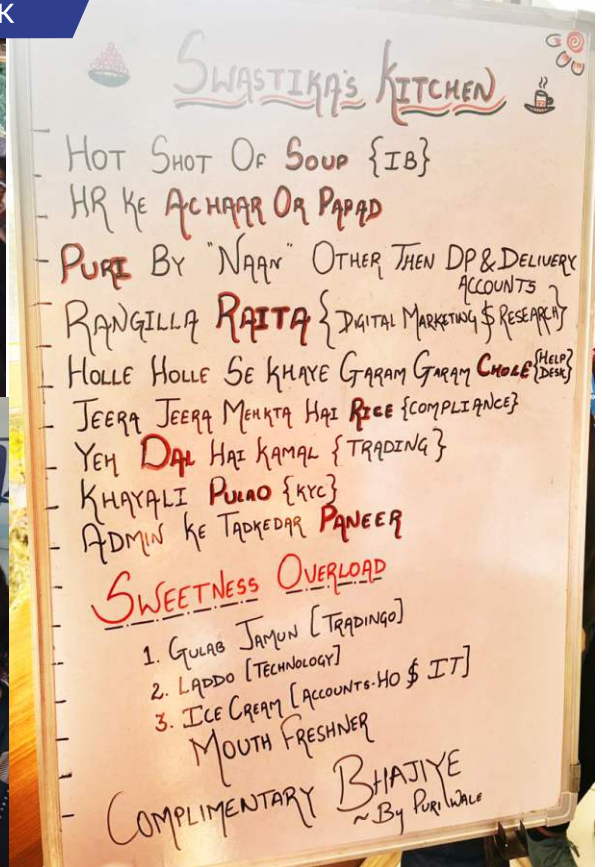 K
SWASTIKA'S KITCHEN
HOT SHOT OF SOUP {IB}
HR KE ACHAAR OR PAPAD
PURI BY "NAAN" OTHER THEN DP & DELIVERY
ACCOUNTS
RANGILLA RAITA {DIGITAL MARKETING $ RESEARCH}
HOLLE HOLLE SE KHAYE GARAM GARAM CHOLE {HELP DESK}
JEERA JEERA MEHKTA HAI RICE {COMPLIANCE}
YEH DAL HAI KAMAL {TRADING}
KHAYALI PULAO {KYC}
ADMIN KE TADKEDAR PANEER
SWEETNESS OVERLOAD
1. GULAB JAMUN [TRADINGO]
2. LADDO [TECHNOLOGY]
3. ICE CREAM [ACCOUNTS-HO $ IT]
MOUTH FRESHNER
COMPLIMENTARY BHAJIYE
~ BY PURI WALE